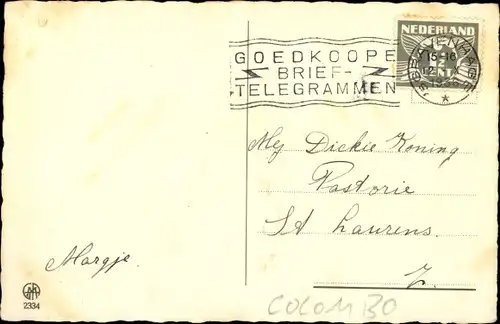 NEDERLAND
CENT
'S-GRAVENHAGE
15-16
GOEDKOOPE
BRIEF-
TELEGRAMMEN
Mej Dickie Koning
Pastorie
St Laurens.
Z.
Margje.
2334
COLOMBO